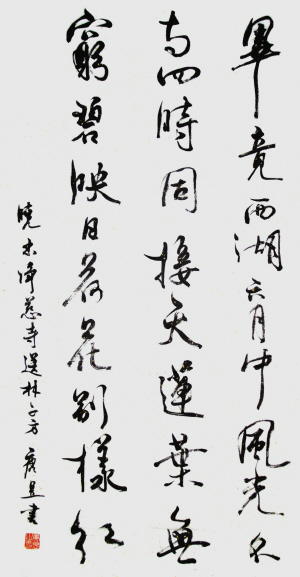 畢竟西湖六月中風光不
与四時同接天蓮葉無
窮碧映日荷花別樣紅
曉出淨慈寺送林子方 書